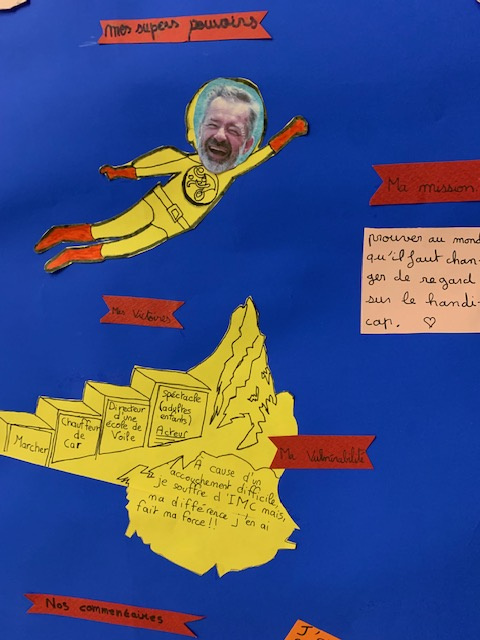 Mes supers pouvoirs
Ma mission
prouver au mond
qu'il faut chan-
ger de regard
sur le handi-
cap. ♡
Mes Victoires
Marcher
Chauffeur
de
car
Directeur
d'une
école de
Voile
spectacle
(adultes
enfants)
Acteur
Ma Vulnérabilité
A cause d'un
accouchement difficile,
je souffre d'IMC mais,
ma différence j'en ai
fait ma force!!
Nos commentaires
J'